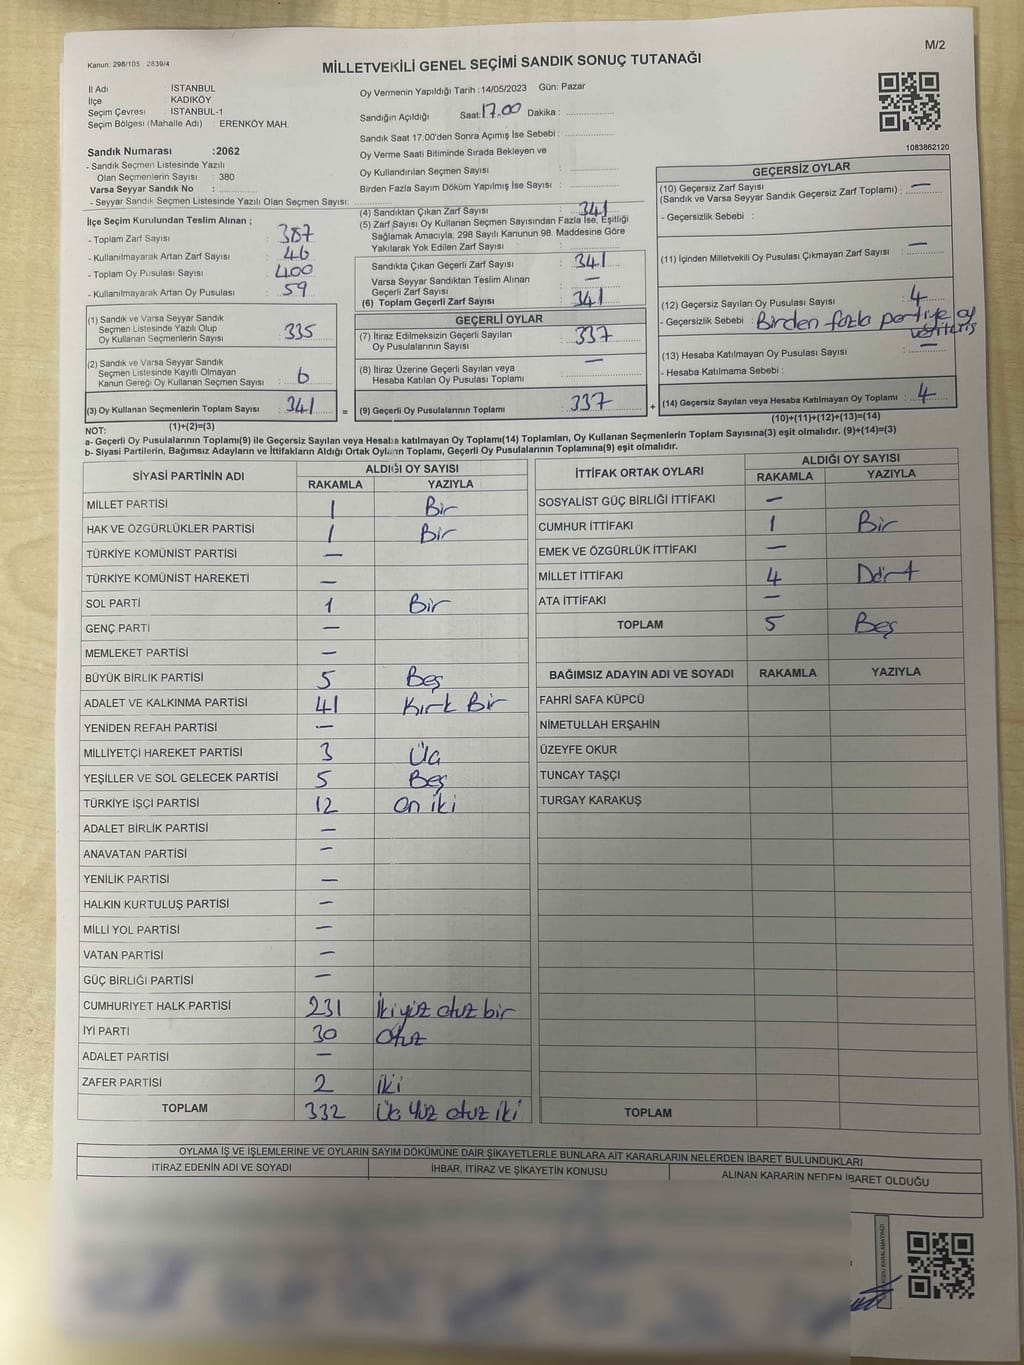 M/2
Kanun: 298/105 2839/4
MİLLETVEKİLİ GENEL SEÇİMİ SANDIK SONUÇ TUTANAĞI
İl Adı : İSTANBUL
İlçe : KADIKÖY
Seçim Çevresi : İSTANBUL-1
Seçim Bölgesi (Mahalle Adı) : ERENKÖY MAH.
Sandık Numarası :2062
- Sandık Seçmen Listesinde Yazılı
Olan Seçmenlerin Sayısı : 380
Varsa Seyyar Sandık No :
- Seyyar Sandık Seçmen Listesinde Yazılı Olan Seçmen Sayısı:
Oy Vermenin Yapıldığı Tarih :14/05/2023 Gün: Pazar
Sandığın Açıldığı Saat: 17.00 Dakika :
Sandık Saat 17.00'den Sonra Açımış İse Sebebi :
Oy Verme Saati Bitiminde Sırada Bekleyen ve
Oy Kullandırılan Seçmen Sayısı :
Birden Fazla Sayım Döküm Yapılmış İse Sayısı :
1083862120
İlçe Seçim Kurulundan Teslim Alınan ;
- Toplam Zarf Sayısı : 387
- Kullanılmayarak Artan Zarf Sayısı : 46
- Toplam Oy Pusulası Sayısı : 400
- Kullanılmayarak Artan Oy Pusulası : 59
(1) Sandık ve Varsa Seyyar Sandık
Seçmen Listesinde Yazılı Olup
Oy Kullanan Seçmenlerin Sayısı : 335
(2) Sandık ve Varsa Seyyar Sandık
Seçmen Listesinde Kayıtlı Olmayan
Kanun Gereği Oy Kullanan Seçmen Sayısı : 6
(3) Oy Kullanan Seçmenlerin Toplam Sayısı : 341
(1)+(2)=(3)
(4) Sandıktan Çıkan Zarf Sayısı : 341
(5) Zarf Sayısı Oy Kullanan Seçmen Sayısından Fazla İse, Eşitliği
Sağlamak Amacıyla, 298 Sayılı Kanunun 98. Maddesine Göre
Yakılarak Yok Edilen Zarf Sayısı :
Sandıkta Çıkan Geçerli Zarf Sayısı : 341
Varsa Seyyar Sandıktan Teslim Alınan
Geçerli Zarf Sayısı : —
(6) Toplam Geçerli Zarf Sayısı : 341
GEÇERLİ OYLAR
(7) İtiraz Edilmeksizin Geçerli Sayılan
Oy Pusulalarının Sayısı : 337
(8) İtiraz Üzerine Geçerli Sayılan veya
Hesaba Katılan Oy Pusulası Toplamı : —
= (9) Geçerli Oy Pusulalarının Toplamı : 337
GEÇERSİZ OYLAR
(10) Geçersiz Zarf Sayısı
(Sandık ve Varsa Seyyar Sandık Geçersiz Zarf Toplamı) : —
- Geçersizlik Sebebi :
(11) İçinden Milletvekili Oy Pusulası Çıkmayan Zarf Sayısı : —
(12) Geçersiz Sayılan Oy Pusulası Sayısı : 4
- Geçersizlik Sebebi : Birden fazla partiye oy
verilmiş
(13) Hesaba Katılmayan Oy Pusulası Sayısı : —
- Hesaba Katılmama Sebebi :
+ (14) Geçersiz Sayılan veya Hesaba Katılmayan Oy Toplamı : 4
(10)+(11)+(12)+(13)=(14)
NOT:
a- Geçerli Oy Pusulalarının Toplamı(9) ile Geçersiz Sayılan veya Hesaba katılmayan Oy Toplamı(14) Toplamları, Oy Kullanan Seçmenlerin Toplam Sayısına(3) eşit olmalıdır. (9)+(14)=(3)
b- Siyasi Partilerin, Bağımsız Adayların ve İttifakların Aldığı Ortak Oyların Toplamı, Geçerli Oy Pusulalarının Toplamına(9) eşit olmalıdır.
SİYASİ PARTİNİN ADI ALDIĞI OY SAYISI
RAKAMLA YAZIYLA
MİLLET PARTİSİ 1 Bir
HAK VE ÖZGÜRLÜKLER PARTİSİ 1 Bir
TÜRKİYE KOMÜNİST PARTİSİ —
TÜRKİYE KOMÜNİST HAREKETİ —
SOL PARTİ 1 Bir
GENÇ PARTİ —
MEMLEKET PARTİSİ —
BÜYÜK BİRLİK PARTİSİ 5 Beş
ADALET VE KALKINMA PARTİSİ 41 Kırk Bir
YENİDEN REFAH PARTİSİ —
MİLLİYETÇİ HAREKET PARTİSİ 3 Üç
YEŞİLLER VE SOL GELECEK PARTİSİ 5 Beş
TÜRKİYE İŞÇİ PARTİSİ 12 On iki
ADALET BİRLİK PARTİSİ —
ANAVATAN PARTİSİ —
YENİLİK PARTİSİ —
HALKIN KURTULUŞ PARTİSİ —
MİLLİ YOL PARTİSİ —
VATAN PARTİSİ —
GÜÇ BİRLİĞİ PARTİSİ —
CUMHURİYET HALK PARTİSİ 231 İkiyüz otuz bir
İYİ PARTİ 30 Otuz
ADALET PARTİSİ —
ZAFER PARTİSİ 2 İki
TOPLAM 332 Üç Yüz otuz iki
İTTİFAK ORTAK OYLARI ALDIĞI OY SAYISI
RAKAMLA YAZIYLA
SOSYALİST GÜÇ BİRLİĞİ İTTİFAKI —
CUMHUR İTTİFAKI 1 Bir
EMEK VE ÖZGÜRLÜK İTTİFAKI —
MİLLET İTTİFAKI 4 Dört
ATA İTTİFAKI —
TOPLAM 5 Beş
BAĞIMSIZ ADAYIN ADI VE SOYADI RAKAMLA YAZIYLA
FAHRİ SAFA KÜPCÜ
NİMETULLAH ERŞAHİN
ÜZEYFE OKUR
TUNCAY TAŞÇI
TURGAY KARAKUŞ
TOPLAM
OYLAMA İŞ VE İŞLEMLERİNE VE OYLARIN SAYIM DÖKÜMÜNE DAİR ŞİKAYETLERLE BUNLARA AİT KARARLARIN NELERDEN İBARET BULUNDUKLARI
İTİRAZ EDENİN ADI VE SOYADI İHBAR, İTİRAZ VE ŞİKAYETİN KONUSU ALINAN KARARIN NEDEN İBARET OLDUĞU